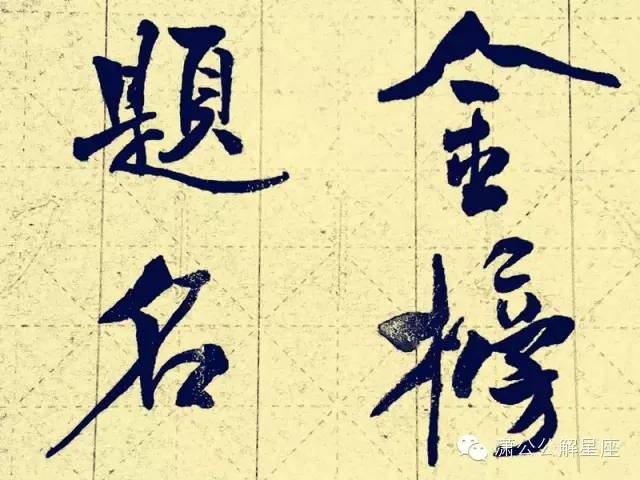 金榜
題名
潇公公解星座